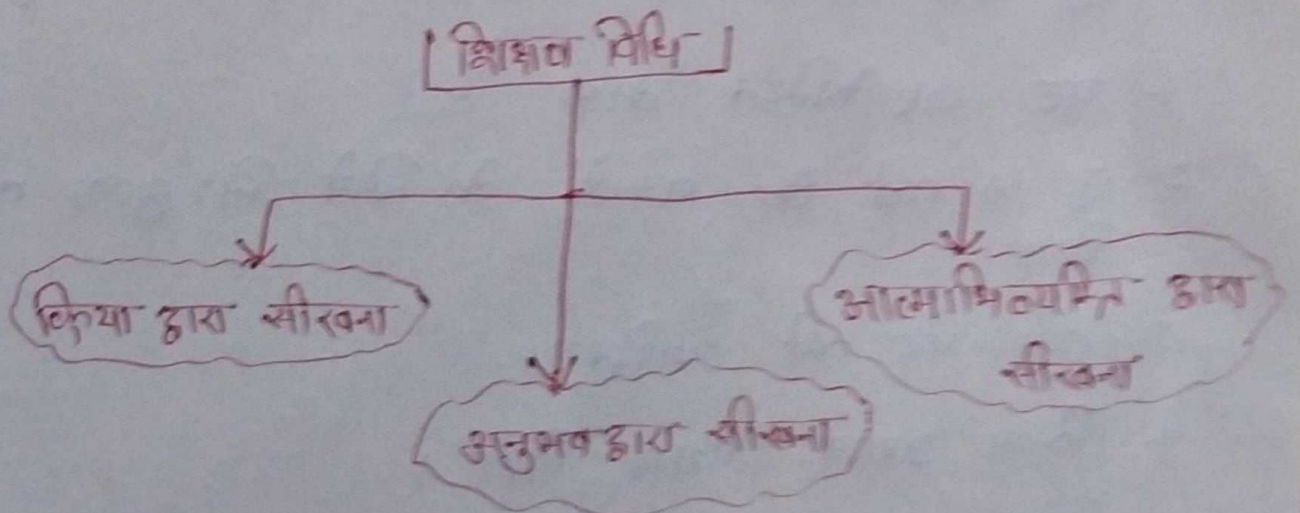 शिक्षण विधि
क्रिया द्वारा सीखना
अनुभव द्वारा सीखना
आत्माभिव्यक्ति द्वारा
सीखना